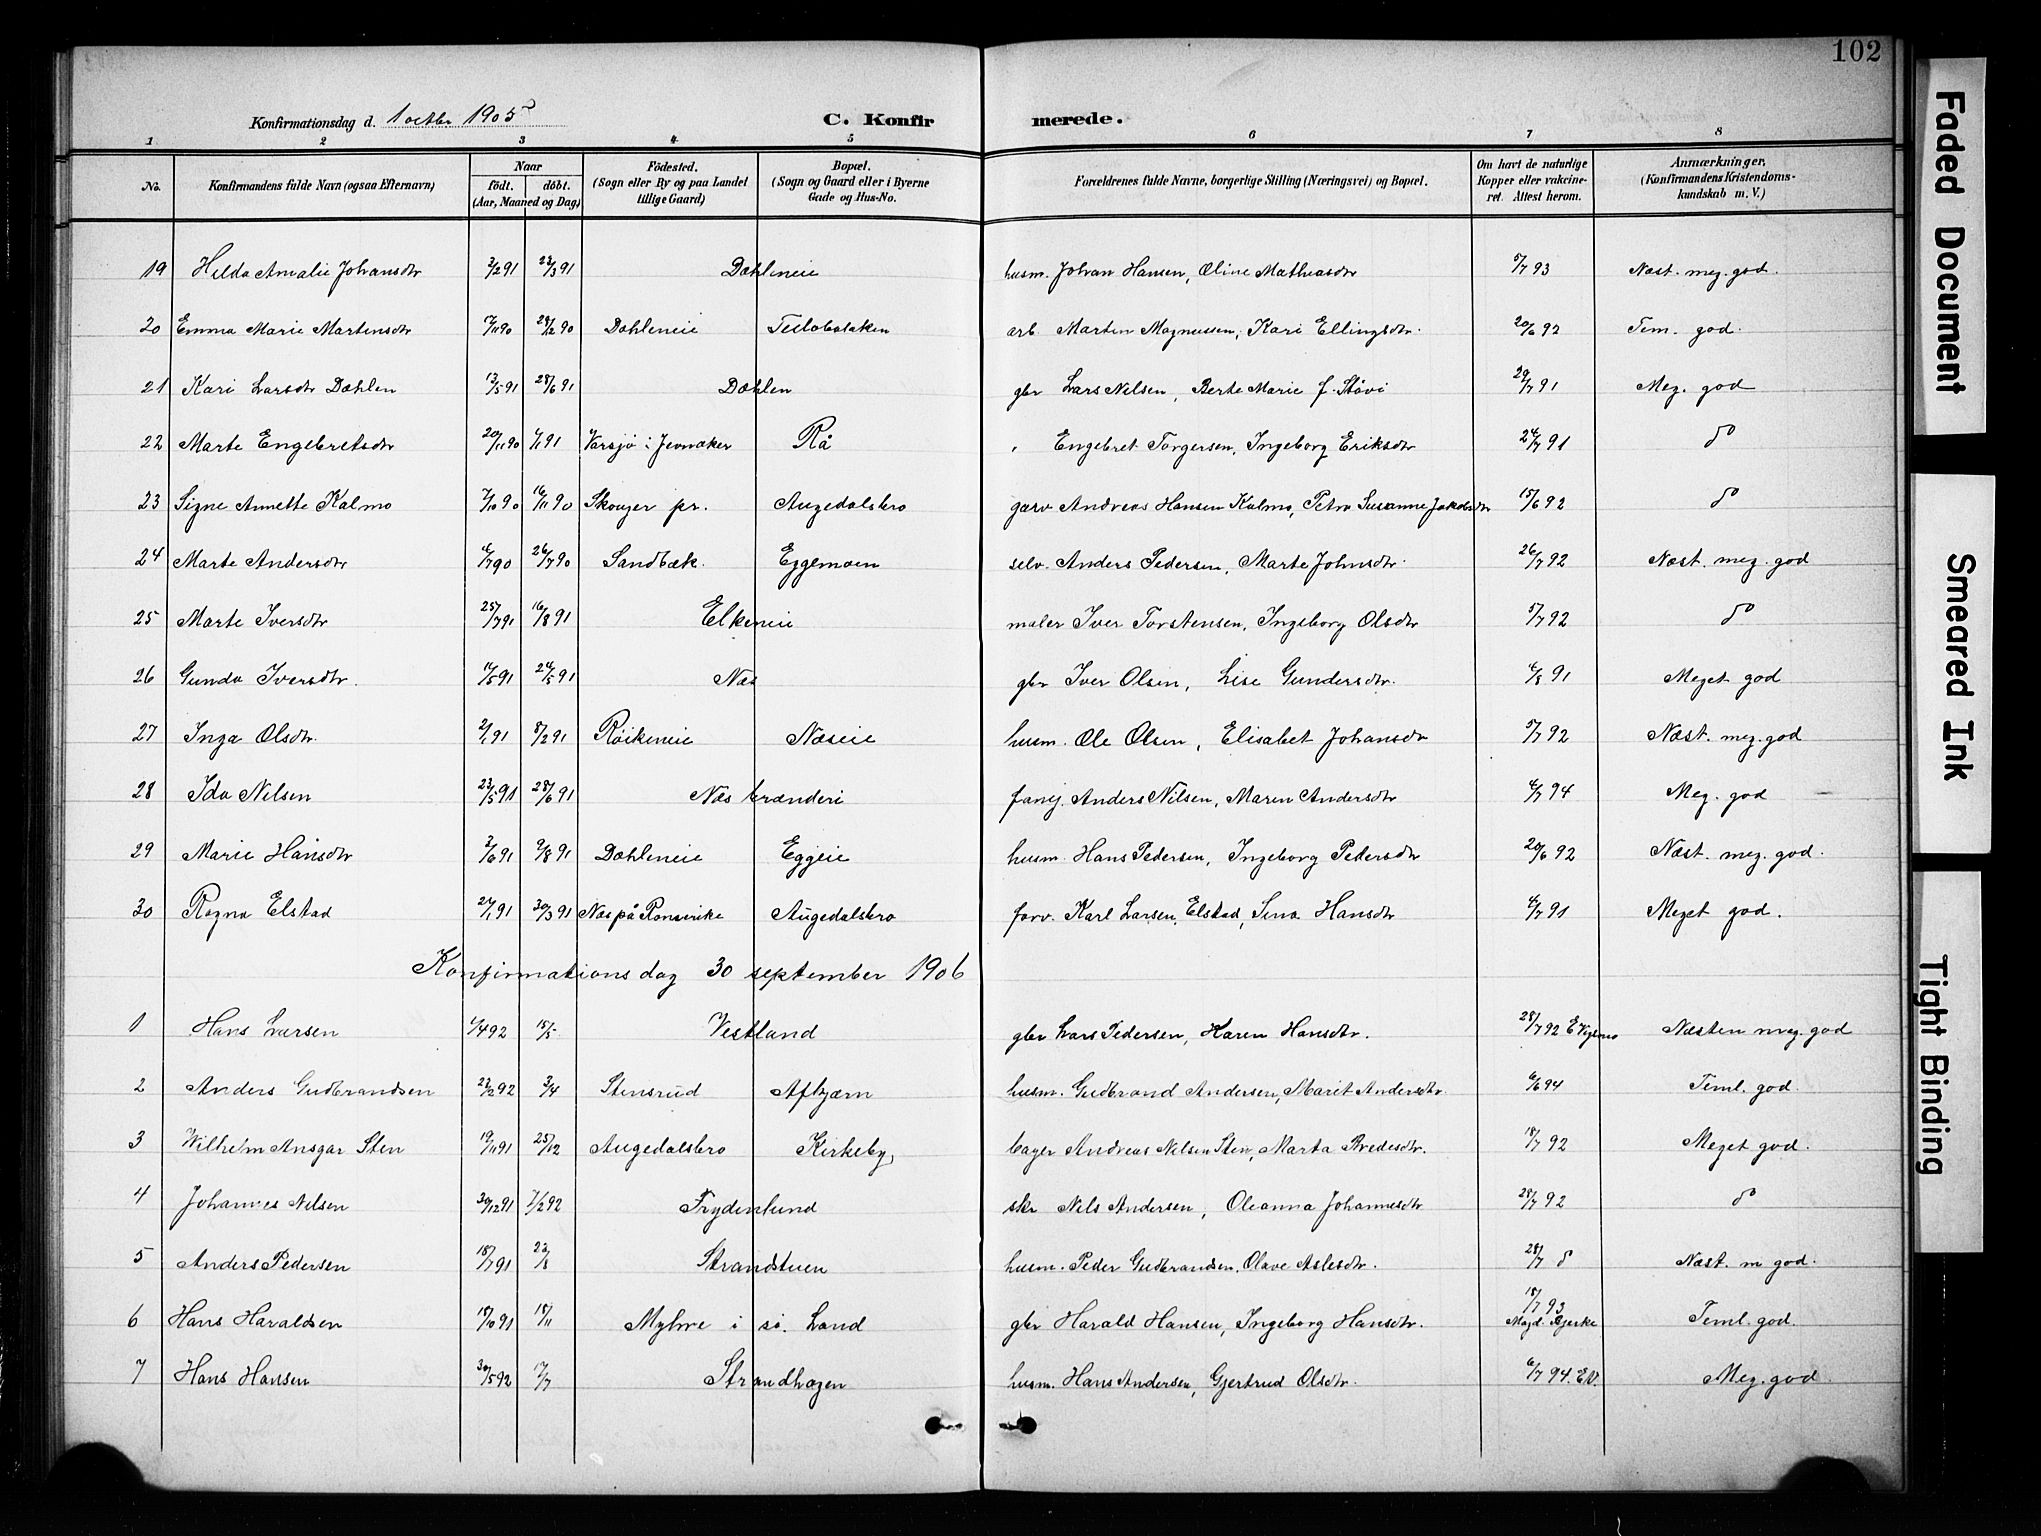 102
Konfirmationsdag d. 1 octbr 1905
C. Konfirmerede.
1 2 3 4 5 6 7 8
No. Konfirmandens fulde Navn (ogsaa Efternavn) Naar födt. döbt. (Aar, Maaned og Dag) Födested. (Sogn eller By og paa Landet tillige Gaard) Bopæl. (Sogn og Gaard eller i Byerne Gade og Hus-No. Forældrenes fulde Navne, borgerlige Stilling (Næringsvei) og Bopæl. Om havt de naturlige Kopper eller vakcineret. Attest herom. Anmærkninger. (Konfirmandens Kristendomskundskab m. V.)
19 Hilda Amalie Johansdtr 3/2 91 23/3 91 Dæhleneie husm. Johan Hansen, Oline Mathiasdtr 5/7 93 Næst. meg. god.
20 Emma Marie Martensdtr 29/12 90 Dæhleneie arb Marten Magnussen, Kari Ellingsdtr. 20/6 92 Tem. god.
21 Kari Larsdtr Dæhlen 13/5 91 28/6 91 Dæhlen gbr Lars Nilsen, Berte Marie f. Støvi 29/7 91 Meg. god
22 Marte Engebretsdtr 20/11 90 1/1 91 Varsjø i Jevnaker Rå " Engebret Torgersen, Ingeborg Eriksdtr 24/7 91 do
23 Signe Annette Kalmo 7/10 90 16/11 90 Skouger pr. Augedalsbro garv Andreas Hansen Kalmo, Petra Susanne Jakobsdtr 15/6 92 do
24 Marte Andersdtr 6/7 90 26/7 90 Sandbæk. Eggemoen selv. Anders Pedersen, Marte Johnsdtr. 26/7 92 Næst. meg. god
25 Marte Iversdtr 25/7 91 16/8 91 Elkeneie maler Iver Torstensen, Ingeborg Olsdtr 5/7 92 do
26 Gunda Iversdtr. 24/5 91 Næs gbr Iver Olsen, Lise Gundersdtr. 4/8 91 Meget god
27 Inga Olsdtr. 2/1 91 8/2 91 Röikeneie Næseie husm. Ole Olsen, Elisabet Johansdr 5/7 92 Næst. meg. god
28 Ida Nilsen 23/5 91 28/6 91 Næs brænderi Anders Nilsen, Maren Andersdtr 4/7 94 Meg. god
29 Marie Hansdtr 3/6 91 9/8 91 Dæhleneie Eggeie husm. Hans Pedersen, Ingeborg Pedersdtr 20/6 92 Næst. meg. god.
30 Ragna Elstad 27/1 91 30/3 91 Næs på Romerike Augedalsbro farv. Karl Larsen Elstad, Sina Hansdtr 4/7 91 Meget god.
Konfirmationsdag 30 september 1906
1 Hans Larsen 4/4 92 15/5- Vestland gbr Lars Pedersen, Karen Hansdtr. 28/7 92 Næsten meg. god
2 Anders Gudbrandsen 22/2 92 3/4 Stensrud Afkjærn husm. Gudbrand Andersen, Marit Andersdtr. 6/6 94 Teml. god.
3 Wilhelm Ansgar Sten 19/11 91 25/12 Augedalsbro Kirkeby, bager Andreas Nilsen Sten, Marta Bredesdtr. 18/7 92 Meget god.
4 Johannes Nilsen 30/12 91 7/2 92 Frydenlund skr Nils Andersen, Oleanna Johannesdtr 28/7 92 do
5 Anders Pedersen 18/7 91 23/8 Strandstuen husm. Peder Gudbrandsen, Olave Aslesdtr. 28/7 d Næst. m god.
6 Hans Haraldsen 18/10 91 15/11 Myhre i sö. Land gbr Harald Hansen, Ingeborg Hansdtr. 18/7 93 Magd. Bjerke Teml. god.
7 Hans Hansen 30/5 92 17/7 Strandhagen husm. Hans Andersen, Gjertrud Olsdtr. 6/7 94. E.V. Meg. god
Faded Document
Smeared Ink
Tight Binding